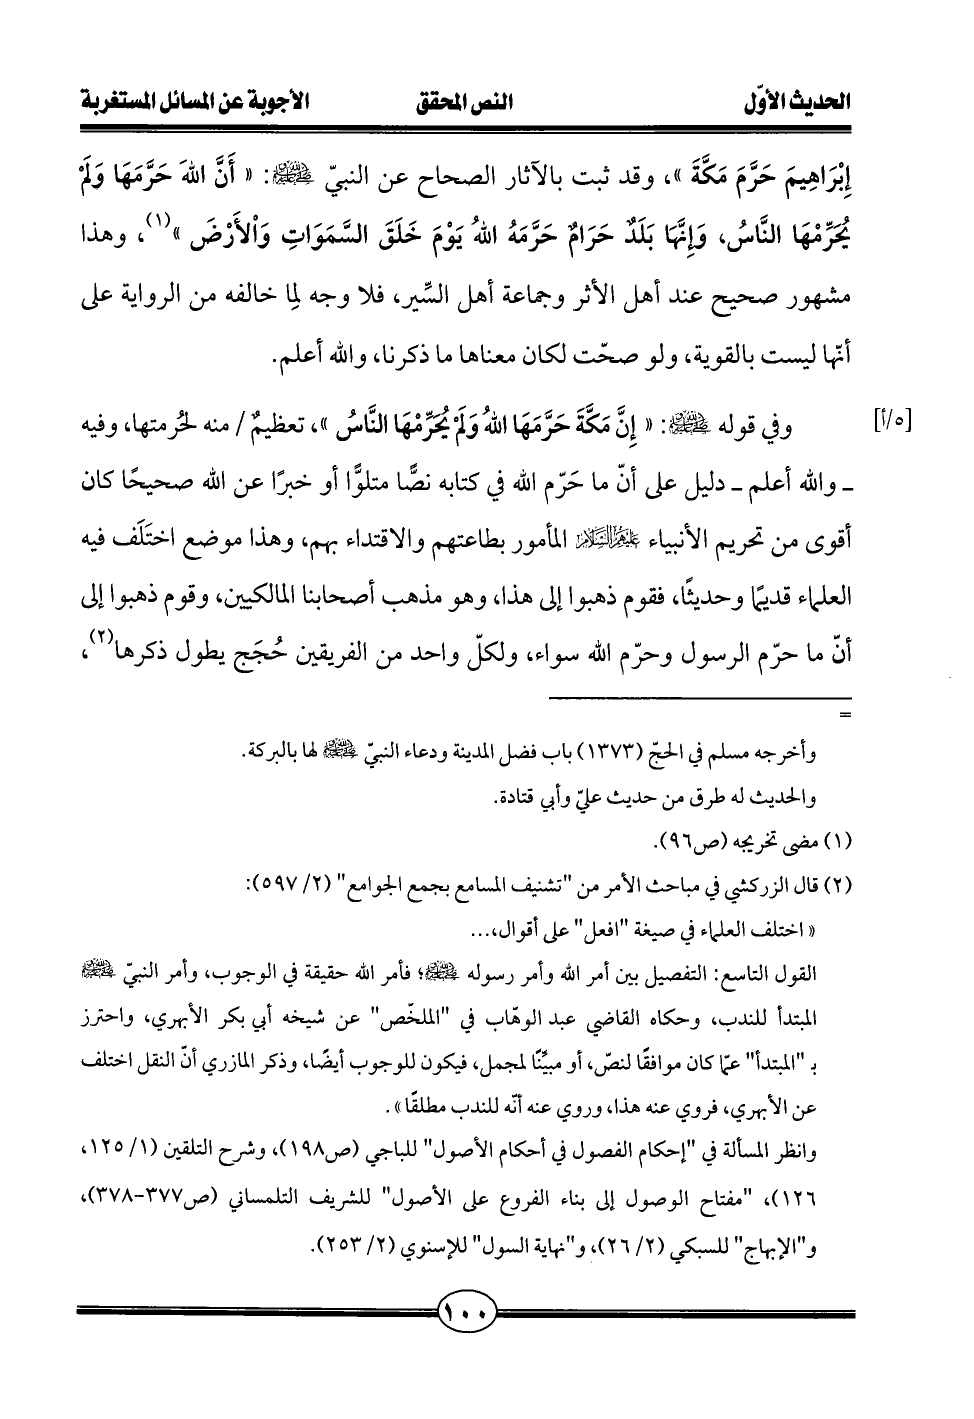 الحديث الأوّل النص المحقق الأجوبة عن المسائل المستغربة
إِبْرَاهِيمَ حَرَّمَ مَكَّةَ »، وقد ثبت بالآثار الصحاح عن النبيّ ﷺ: « أَنَّ اللهَ حَرَّمَهَا وَلَمْ
يُحَرِّمْهَا النَّاسُ، وَإِنَّهَا بَلَدٌ حَرَامٌ حَرَّمَهُ اللهُ يَوْمَ خَلَقَ السَّمَوَاتِ وَالْأَرْضَ »(١)، وهذا
مشهور صحيح عند أهل الأثر وجماعة أهل السِّير، فلا وجه لِما خالفه من الرواية على
أنّها ليست بالقوية، ولو صحّت لكان معناها ما ذكرنا، والله أعلم.
وفي قوله ﷺ: « إِنَّ مَكَّةَ حَرَّمَهَا اللهُ وَلَمْ يُحَرِّمْهَا النَّاسُ »، تعظيمٌ / منه لحُرمتها، وفيه [٥/أ]
ـ والله أعلم ـ دليل على أنّ ما حَرّم الله في كتابه نصًّا متلوًّا أو خبرًا عن الله صحيحًا كان
أقوى من تحريم الأنبياء عليهم السلام المأمور بطاعتهم والاقتداء بهم، وهذا موضع اختَلَف فيه
العلماء قديمًا وحديثًا، فقوم ذهبوا إلى هذا، وهو مذهب أصحابنا المالكيين، وقوم ذهبوا إلى
أنّ ما حرّم الرسول وحرّم الله سواء، ولكلّ واحد من الفريقين حُجَج يطول ذكرها(٢)،
=
وأخرجه مسلم في الحجّ (١٣٧٣) باب فضل المدينة ودعاء النبيّ ﷺ لها بالبركة.
والحديث له طرق من حديث عليّ وأبي قتادة.
(١) مضى تخريجه (ص٩٦).
(٢) قال الزركشي في مباحث الأمر من "تشنيف المسامع بجمع الجوامع" (٢/ ٥٩٧):
« اختلف العلماء في صيغة "افعل" على أقوال،...
القول التاسع: التفصيل بين أمر الله وأمر رسوله ﷺ؛ فأمر الله حقيقة في الوجوب، وأمر النبيّ ﷺ
المبتدأ للندب، وحكاه القاضي عبد الوهّاب في "الملخّص" عن شيخه أبي بكر الأبهري، واحترز
بـ "المبتدأ" عمّا كان موافقًا لنصّ، أو مبيِّنًا لمجمل، فيكون للوجوب أيضًا، وذكر المازري أنّ النقل اختلف
عن الأبهري، فروي عنه هذا، وروي عنه أنّه للندب مطلقًا».
وانظر المسألة في "إحكام الفصول في أحكام الأصول" للباجي (ص١٩٨)، وشرح التلقين (١/ ١٢٥،
١٢٦)، "مفتاح الوصول إلى بناء الفروع على الأصول" للشريف التلمساني (ص٣٧٧-٣٧٨)،
و"الإبهاج" للسبكي (٢/ ٢٦)، و"نهاية السول" للإسنوي (٢/ ٢٥٣).
١٠٠